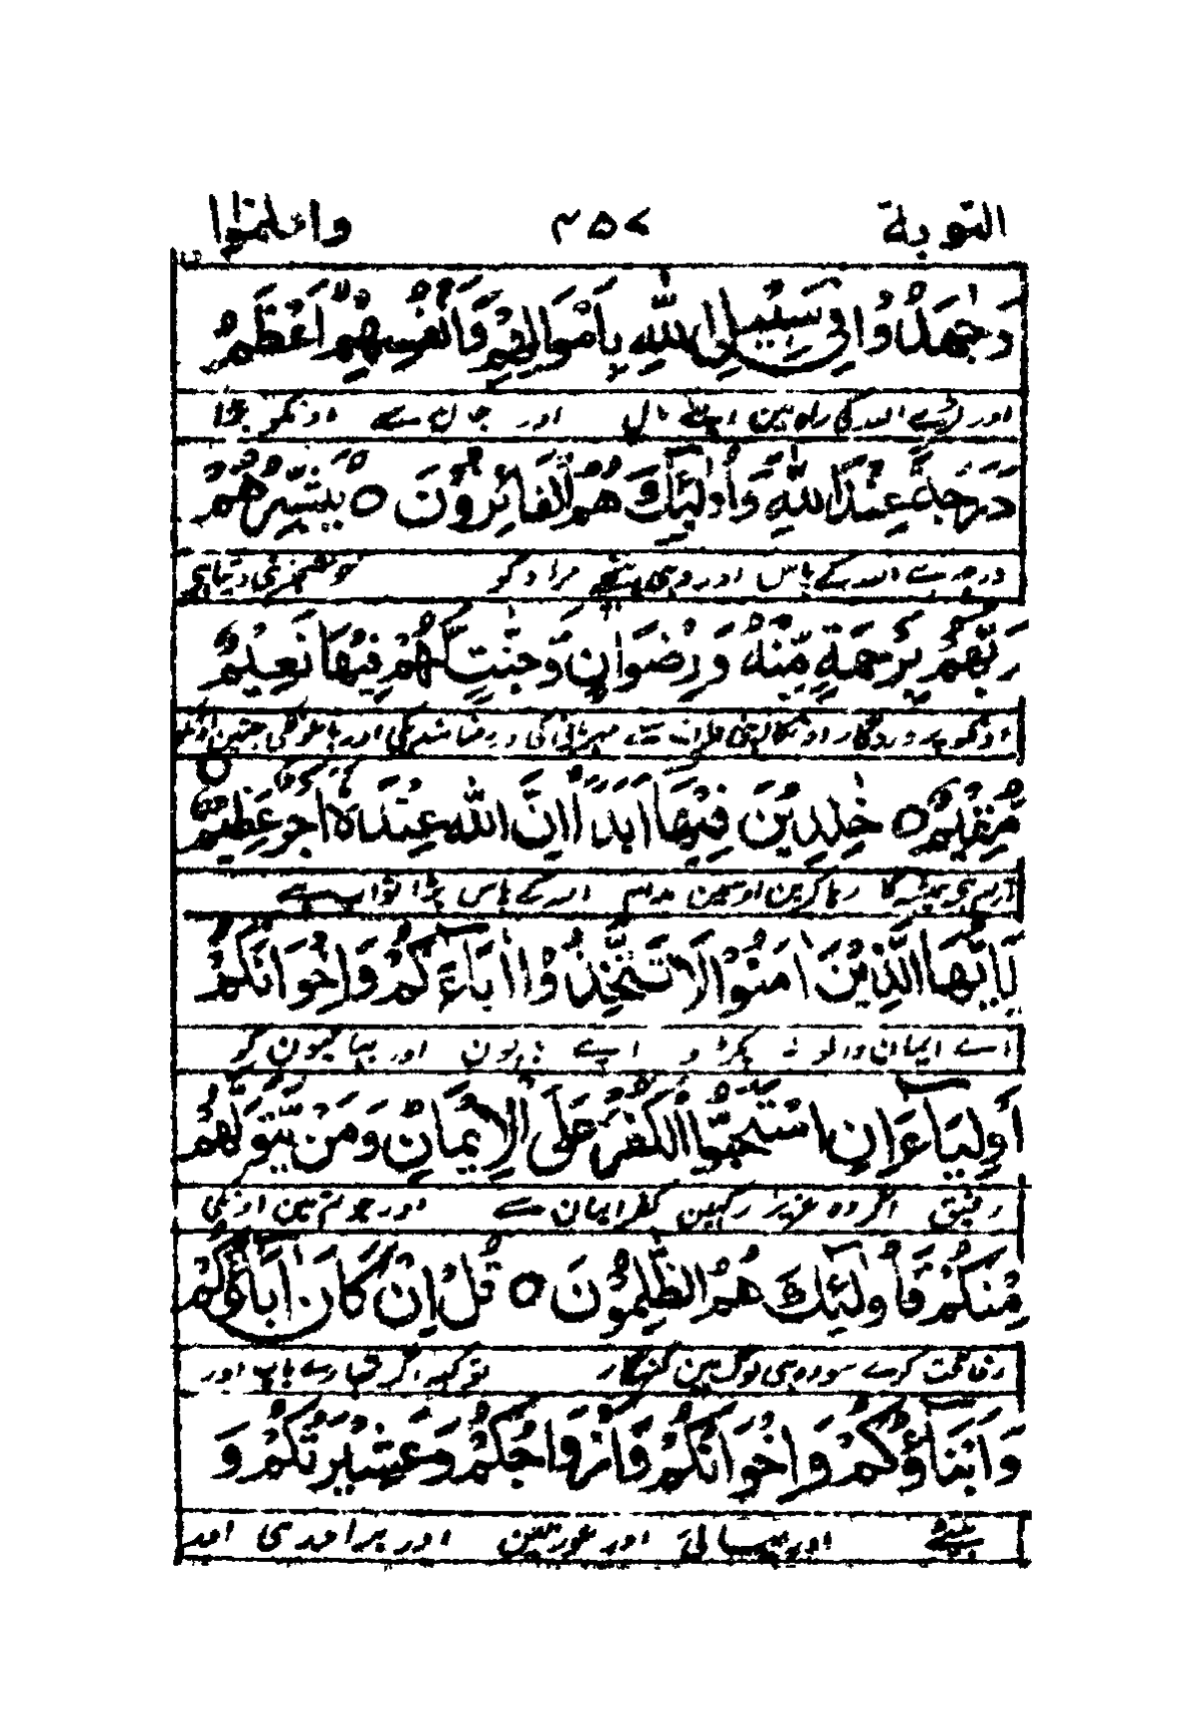 التوبة ۳۵۷ واعلموا
وَجٰهَدُوْا فِیْ سَبِیْلِ اللّٰهِ بِاَمْوَالِهِمْ وَاَنْفُسِهِمْ اَعْظَمُ
اور لڑے اللہ کی راہ مین اپنے مال اور جان سے اونکو بڑا
دَرَجَةً عِنْدَ اللّٰهِ وَاُولٰٓئِكَ هُمُ الْفَآئِزُوْنَ ○ یُبَشِّرُهُمْ
درجہ ہے اللہ کے پاس اور وہی پہنچے مراد کو خوشخبری دیتا ہی
رَبُّهُمْ بِرَحْمَةٍ مِّنْهُ وَرِضْوَانٍ وَّجَنّٰتٍ لَّهُمْ فِیْهَا نَعِیْمٌ
اونکو پروردگار اونکا اپنی طرف سے مہربانی کی اور رضامندی کی اور باغونکی جنمین اونکو
مُّقِیْمٌ ○ خٰلِدِیْنَ فِیْهَا اَبَدًا اِنَّ اللّٰهَ عِنْدَهٗ اَجْرٌ عَظِیْمٌ ○
آرام ہی ہمیشہ کا رہا کرین اوسمین مدام اللہ کے پاس بڑا ثواب ہے
یٰاَیُّهَا الَّذِیْنَ اٰمَنُوْا لَا تَتَّخِذُوْا اٰبَآءَكُمْ وَاِخْوَانَكُمْ
اے ایمان والو نہ پکڑو اپنے باپون اور بھائیون کو
اَوْلِیَآءَ اِنِ اسْتَحَبُّوا الْكُفْرَ عَلَی الْاِیْمَانِ وَمَنْ یَّتَوَلَّهُمْ
رفیق اگر وہ عزیز رکہین کفر ایمان سے اور جو تم مین اونکی
مِنْكُمْ فَاُولٰٓئِكَ هُمُ الظّٰلِمُوْنَ ○ قُلْ اِنْ كَانَ اٰبَآؤُكُمْ
رفاقت کرے سو وہی لوگ ہین گنہگار تو کہہ اگر تمہارے باپ اور
وَاَبْنَآؤُكُمْ وَاِخْوَانُكُمْ وَاَزْوَاجُكُمْ وَعَشِیْرَتُكُمْ وَ
بیٹے اور بھائی اور عورتین اور برادری اور